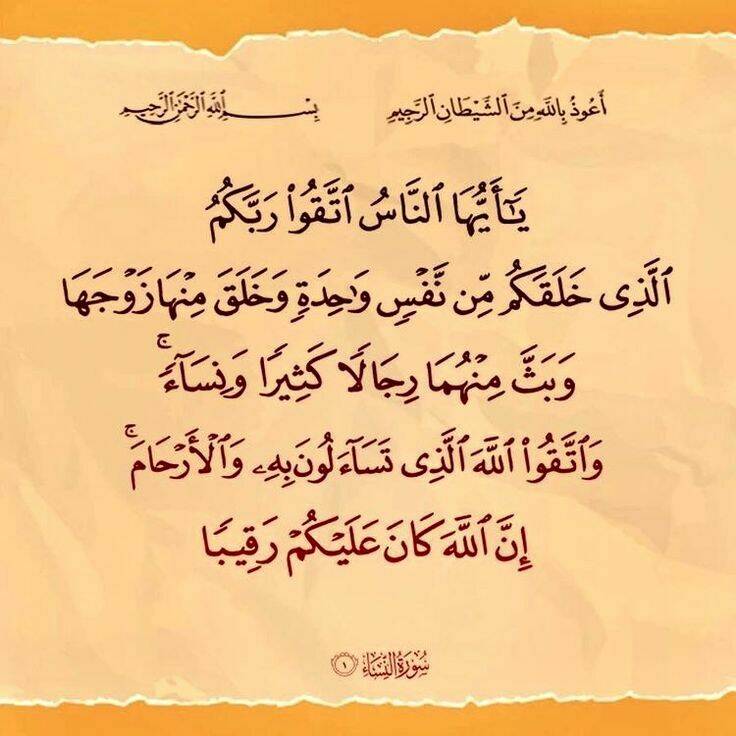 أَعُوذُ بِاللَّهِ مِنَ ٱلشَّيْطَانِ ٱلرَّجِيمِ بِسْمِ ٱللَّهِ ٱلرَّحْمَٰنِ ٱلرَّحِيمِ
يَٰٓأَيُّهَا ٱلنَّاسُ ٱتَّقُوا۟ رَبَّكُمُ
ٱلَّذِى خَلَقَكُم مِّن نَّفْسٍ وَٰحِدَةٍ وَخَلَقَ مِنْهَا زَوْجَهَا
وَبَثَّ مِنْهُمَا رِجَالًا كَثِيرًا وَنِسَآءً ۚ
وَٱتَّقُوا۟ ٱللَّهَ ٱلَّذِى تَسَآءَلُونَ بِهِۦ وَٱلْأَرْحَامَ ۚ
إِنَّ ٱللَّهَ كَانَ عَلَيْكُمْ رَقِيبًا
سُورَةُ النِّسَاءِ ١